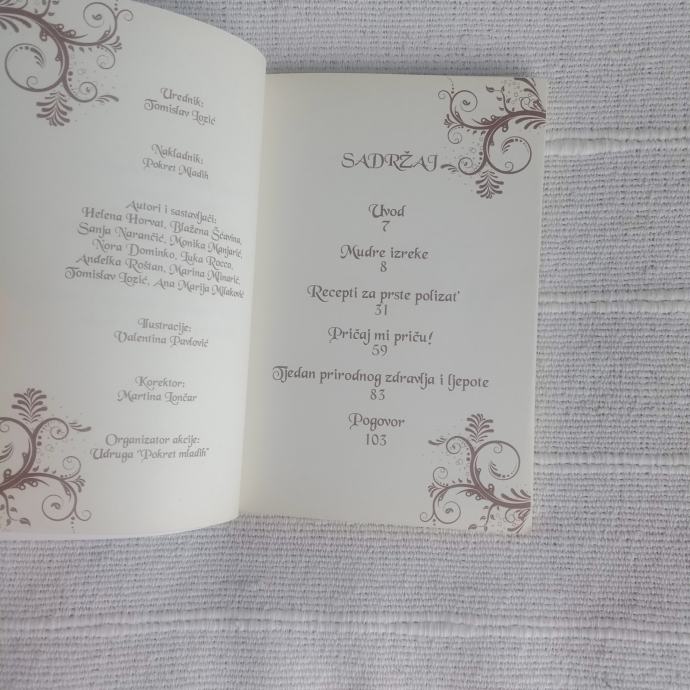 Urednik:
Tomislav Lozić
Nakladnik:
Pokret Mladih
Autori i sastavljači:
Helena Horvat, Blažena Šćavina,
Sanja Narančić, Monika Manjarić,
Nora Dominko, Luka Rocco,
Anđelka Roštan, Marina Mlinarić,
Tomislav Lozić, Ana Marija Milaković
Ilustracije:
Valentina Pavlović
Korektor:
Martina Lončar
Organizator akcije:
Udruga "Pokret mladih"
SADRŽAJ
Uvod
7
Mudre izreke
8
Recepti za prste polizat'
31
Pričaj mi priču!
59
Tjedan prirodnog zdravlja i ljepote
83
Pogovor
103